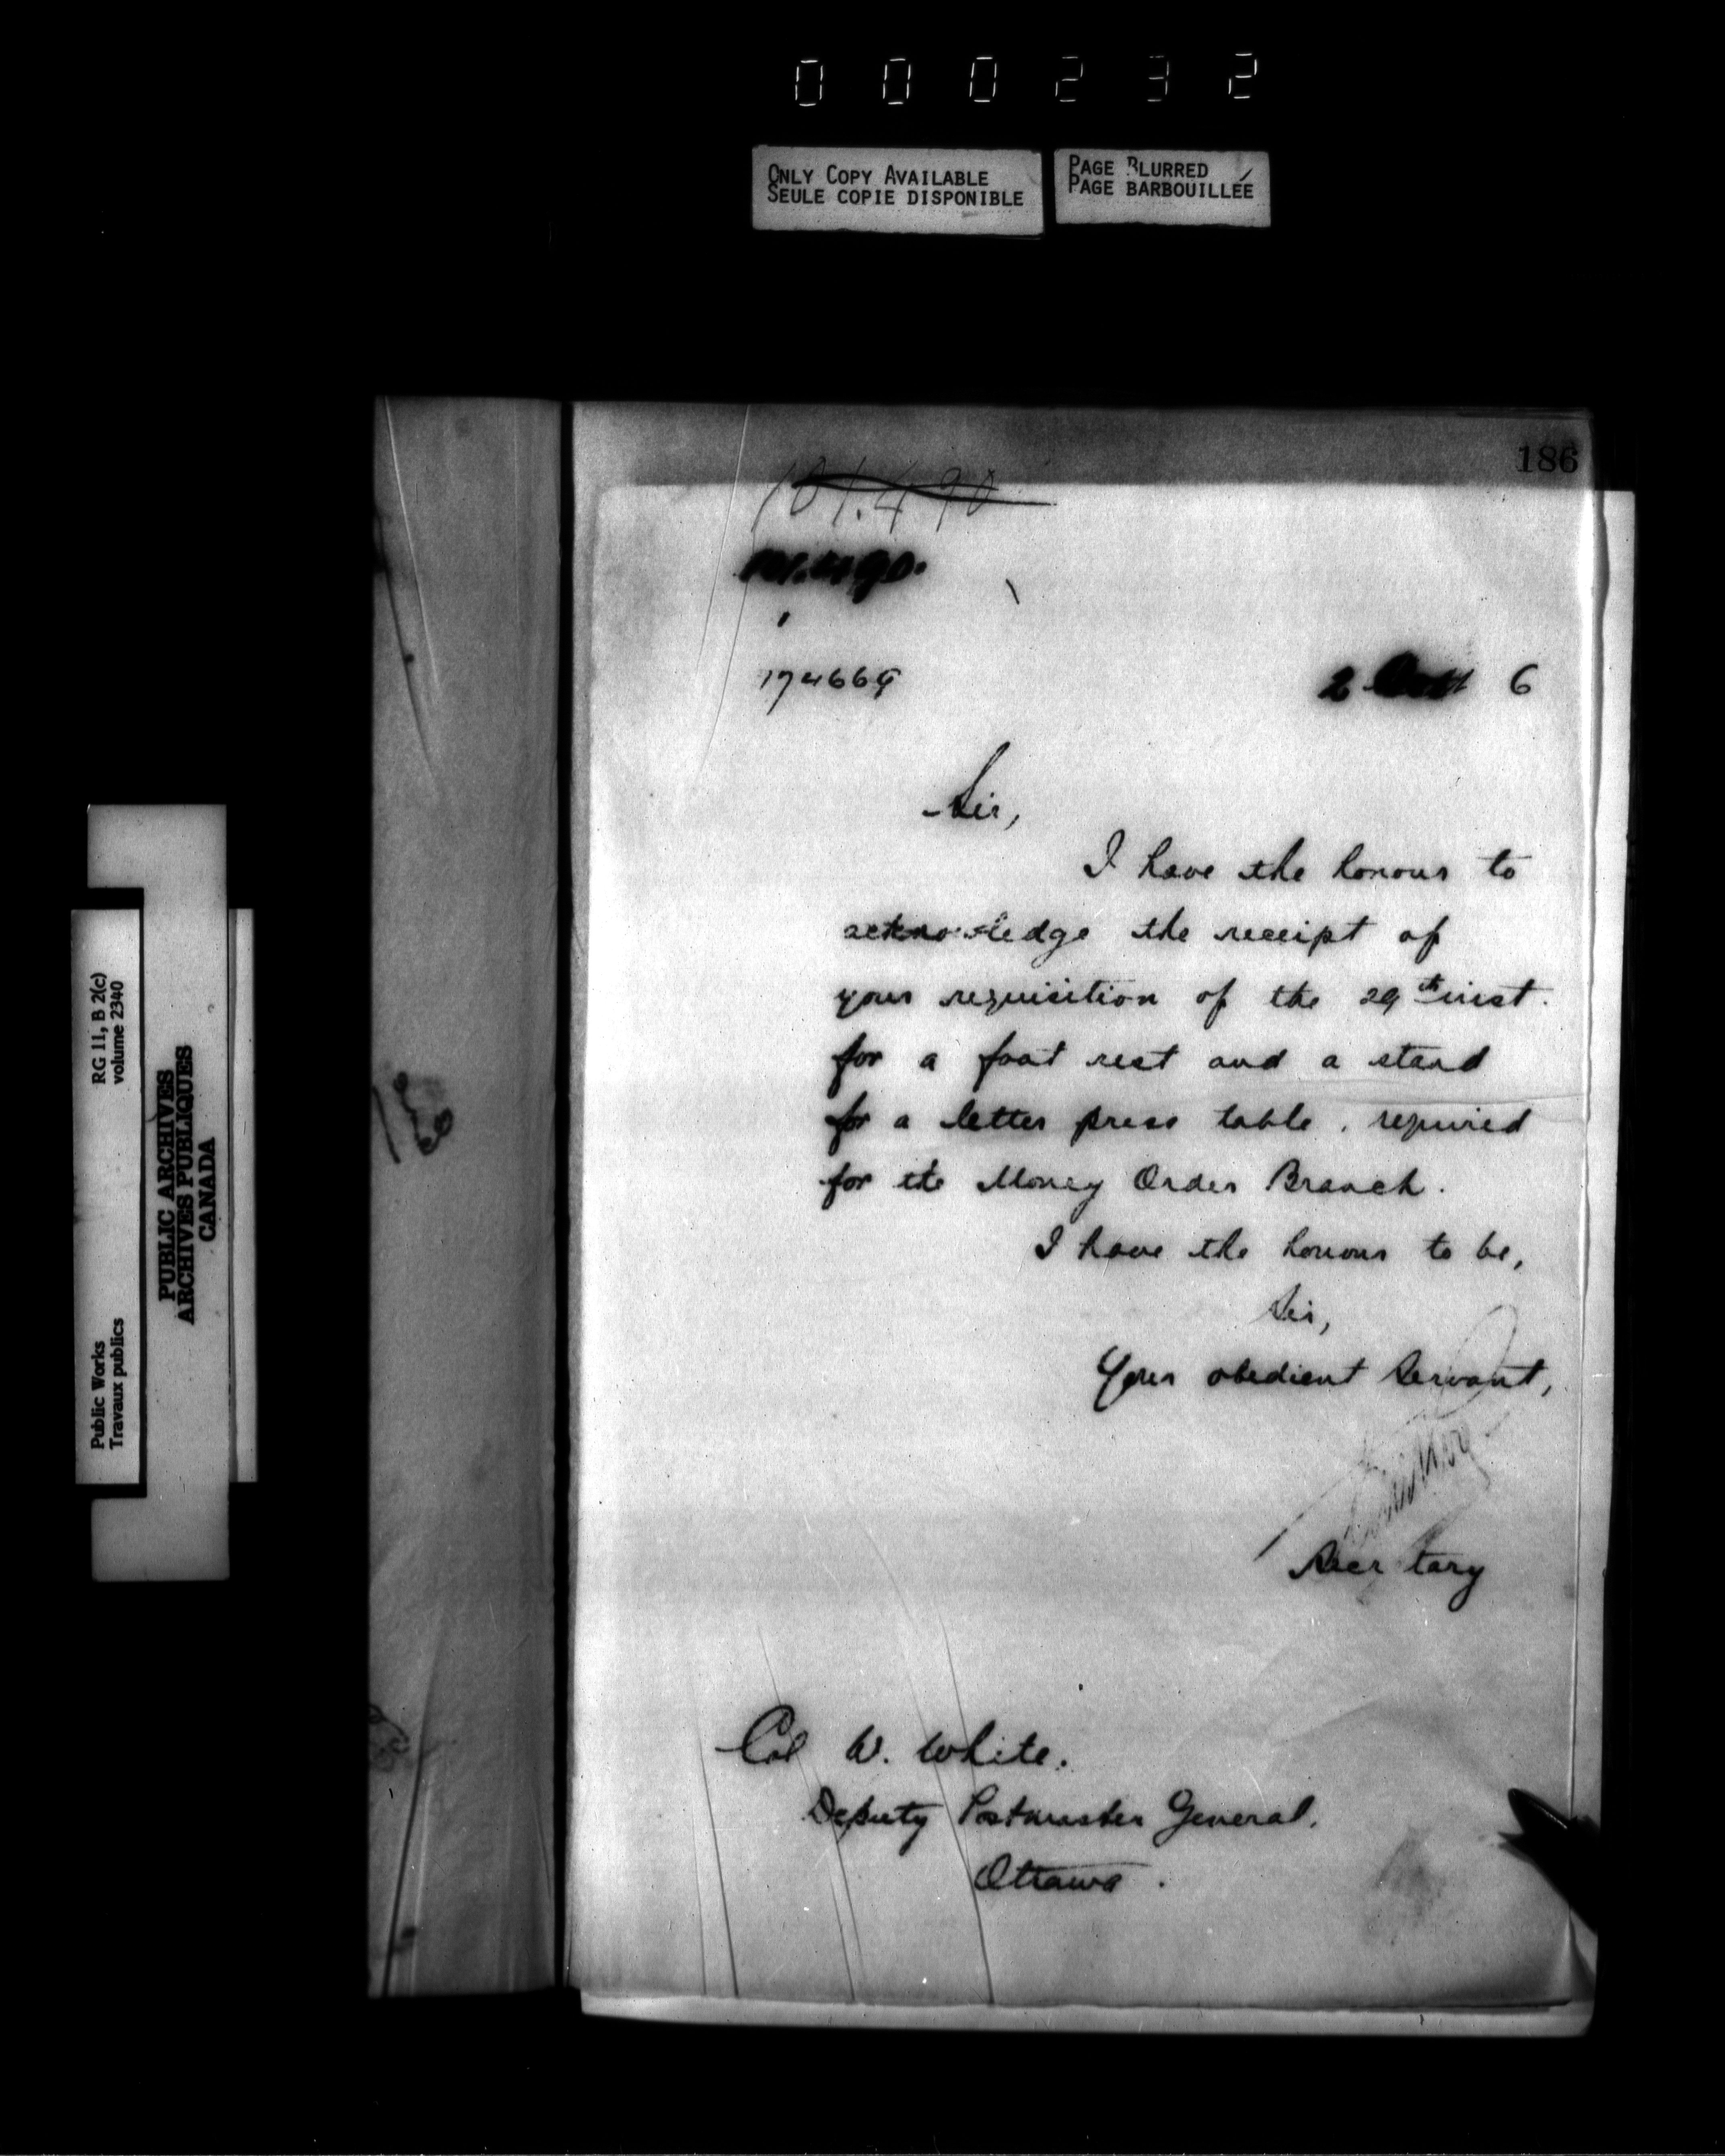 000232
ONLY COPY AVAILABLE
SEULE COPIE DISPONIBLE
PAGE BLURRED
PAGE BARBOUILLÉE
186
101.490
101.490.
174669
2 6
Sir,
I have the honour to
acknowledge the receipt of
your requisition of the 29th inst.
for a foot rest and a stand
for a letter press table, required
for the Money Order Branch.
I have the honour to be,
Sir,
Your obedient Servant,
Secretary
Col W. White.
Deputy Postmaster General.
Ottawa.
RG 11, B 2(c)
volume 2340
Public Works
Travaux publics
PUBLIC ARCHIVES
ARCHIVES PUBLIQUES
CANADA